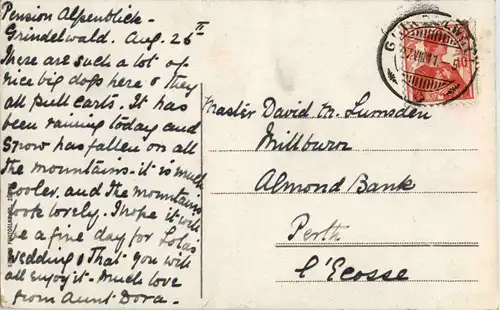 Pension Alpenblick -
Grindelwald. Aug. 26th
There are such a lot of
nice big dogs here & they
all pull carts. It has
been raining today and
snow has fallen on all
the mountains - it is much
cooler, and the mountains
look lovely. I hope it will
be a fine day for Lola's
wedding & that you will
all enjoy it - Much love
from Aunt Dora -
Master David M. Lumsden
Millburn
Almond Bank
Perth
l'Ecosse